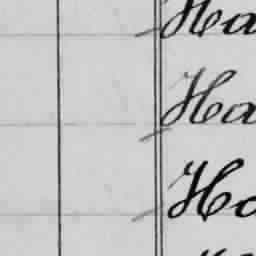 Ha
Ha
Ho